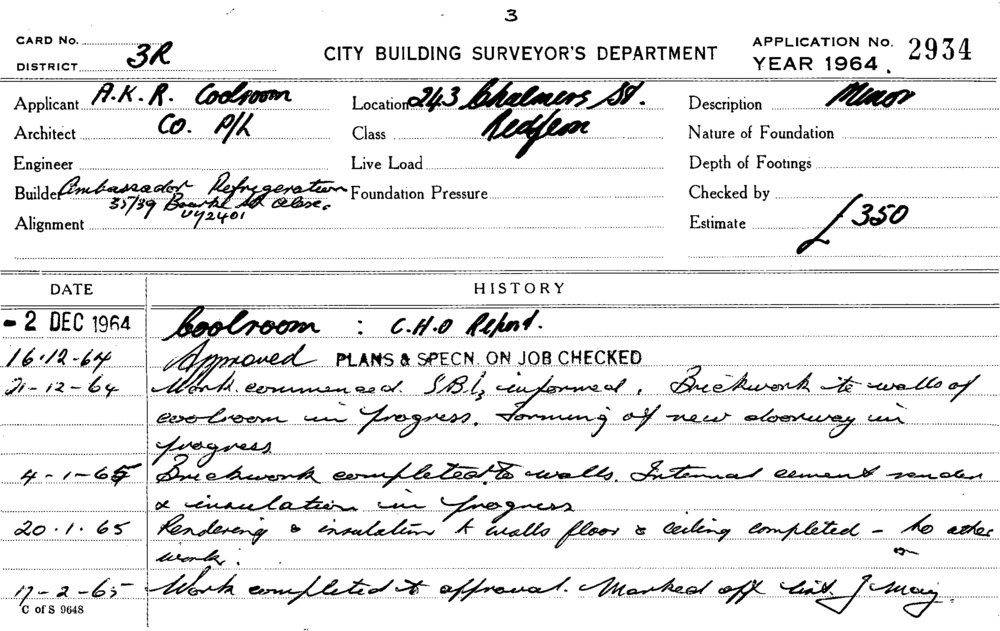 3
CARD No.
CITY BUILDING SURVEYOR'S DEPARTMENT
APPLICATION No. 2934
DISTRICT 3R
YEAR 1964.
Applicant A.K.R. Coolroom
Location 243 Chalmers St.
Description Minor
Architect Co. P/L
Class Redfern
Nature of Foundation
Engineer
Live Load
Depth of Footings
Builder Ambassador Refrigeration
Foundation Pressure
Checked by
35/39 Bourke St Alex.
UY2401
Alignment
Estimate £350
DATE HISTORY
- 2 DEC 1964 Coolroom : C.H.O Report.
16.12-64 Approved PLANS & SPECN. ON JOB CHECKED
21-12-64 Work commenced. S.B.I. informed. Brickwork to walls of
coolroom in progress. Forming of new doorway in
progress
4-1-65 Brickwork completed to walls. Internal cement render
& insulation in progress
20.1.65 Rendering & insulation to walls floor & ceiling completed - no other
work.
17-2-65 Work completed to approval. Marked off list. J May.
C of S 9648